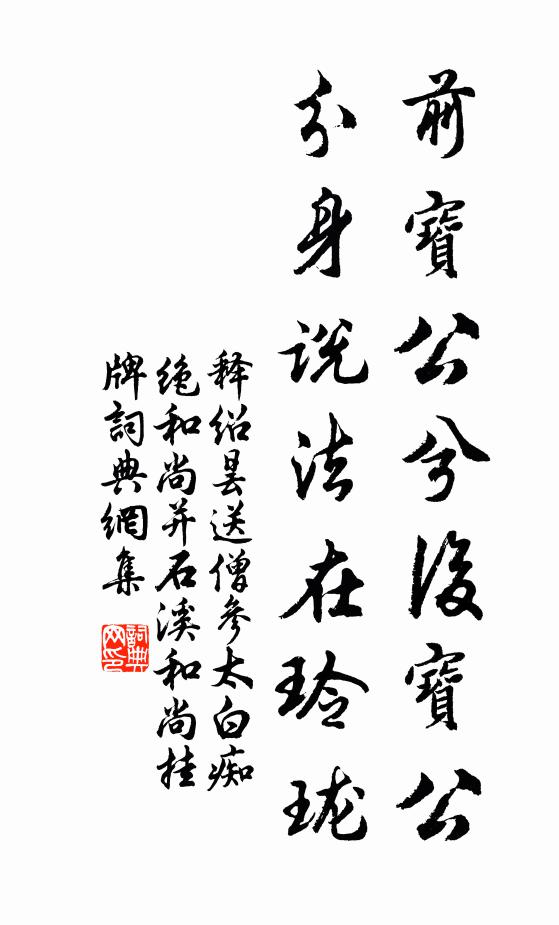 前寶公兮後寶公
分身说法在玲珑
释绍昙送僧參太白痴
绝和尚并石溪和尚挂
牌詞典網集
詞典
网印